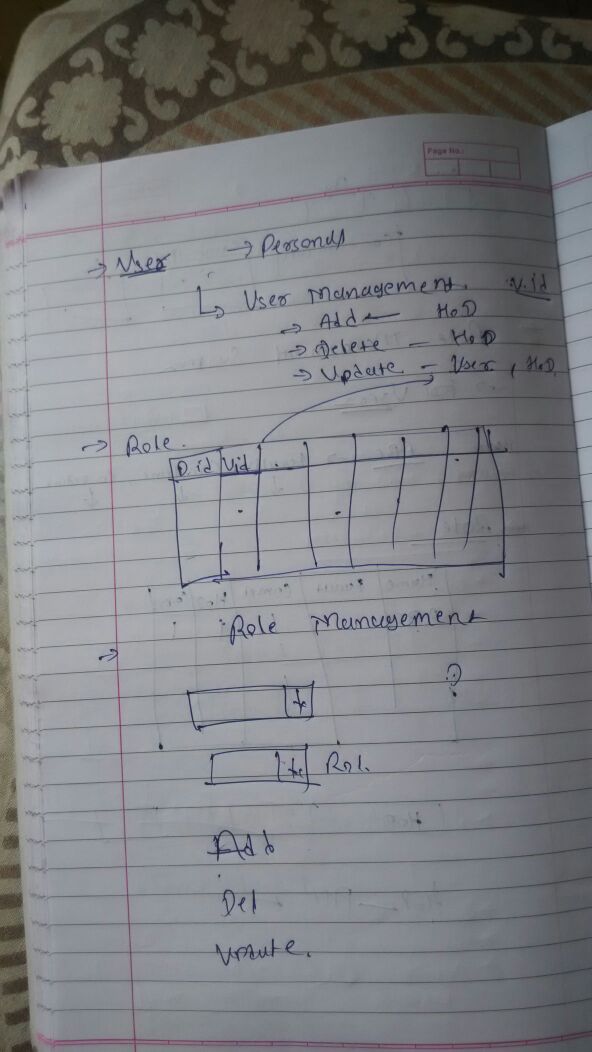 Page No.:
→ User → Personal
↳ User Management. U.id
→ Add ← HOD
→ Delete - HOD
→ Update - User, HOD
→ Role.
D.id Uid
Role Management
→
?
Rol.
Add
Del
Update.